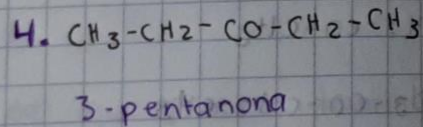 4. CH3-CH2-CO-CH2-CH3
3-pentanona